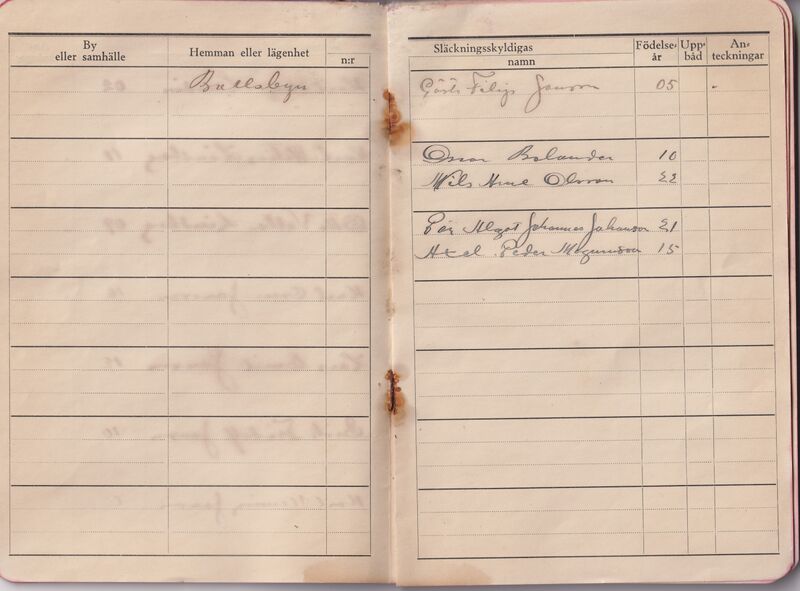 By
eller samhälle
Hemman eller lägenhet
n:r
Ballsbyn
Släckningsskyldigas
namn
Födelse-
år
Upp-
båd
An-
teckningar
Gösta Filip Janson 05
Oscar Bolander 10
Nils Arne Olsson 22
Per Algot Johannes Johanson 21
Axel Peder Magnusson 15